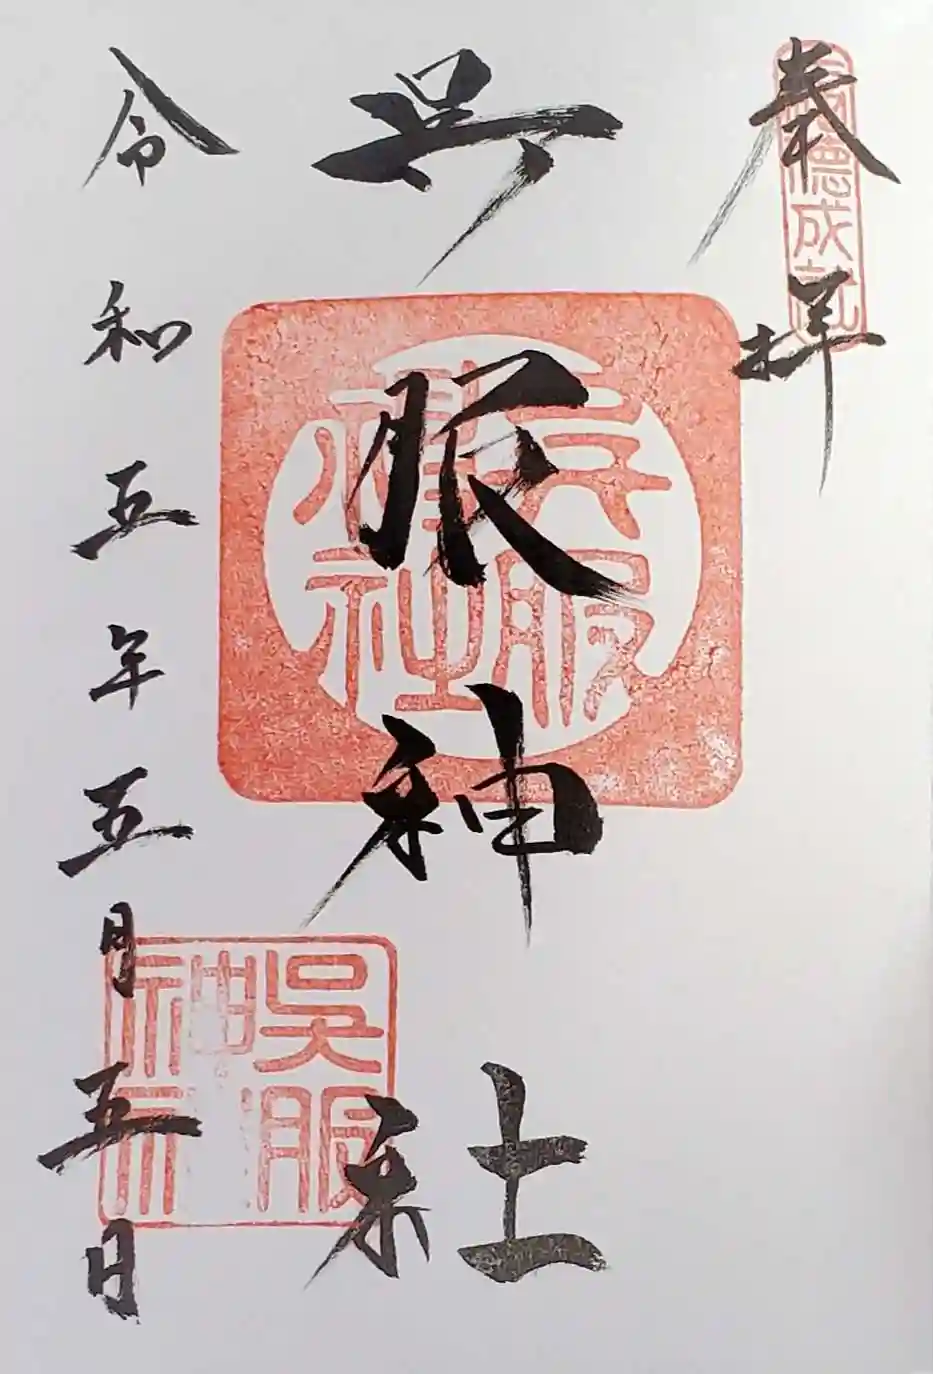 奉拝
呉服神社
呉服
神社
令和五年五月五日
呉服
神社